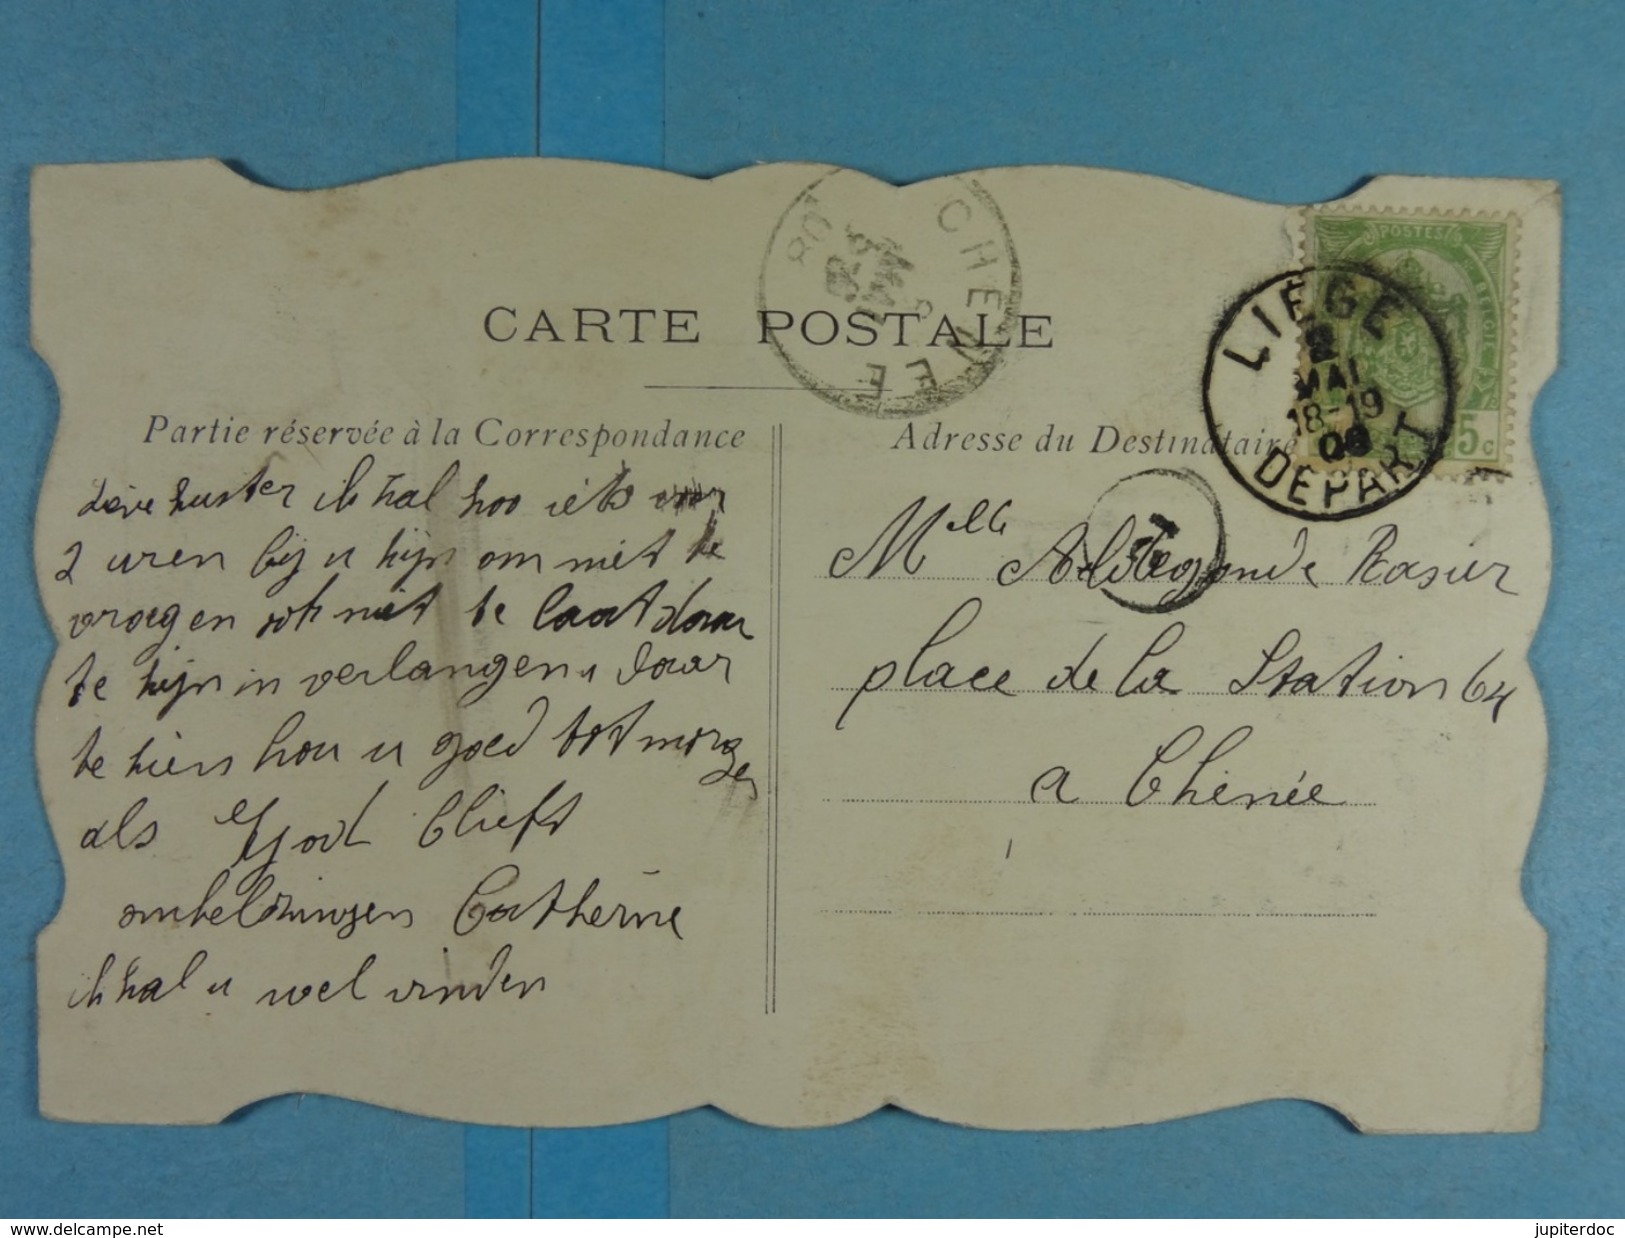 CARTE POSTALE
CHENEE
08
POSTES
BELGIE
5c
LIEGE
2
MAI
18-19
08
DEPART
T
Partie réservée à la Correspondance
Lieve zuster ik zal zoo iets voor
2 uren bij u zijn om niet te
vroegen och niet te laat daar
te zijn in verlangen u daar
te ziens hou u goed tot morgen
als God blieft
omhelzingen Catherine
ik zal u wel vinden
Adresse du Destinataire
Melle Aldegonde Rasier
place de la Station 64
a Chênée
delcampe.net
jupiterdoc